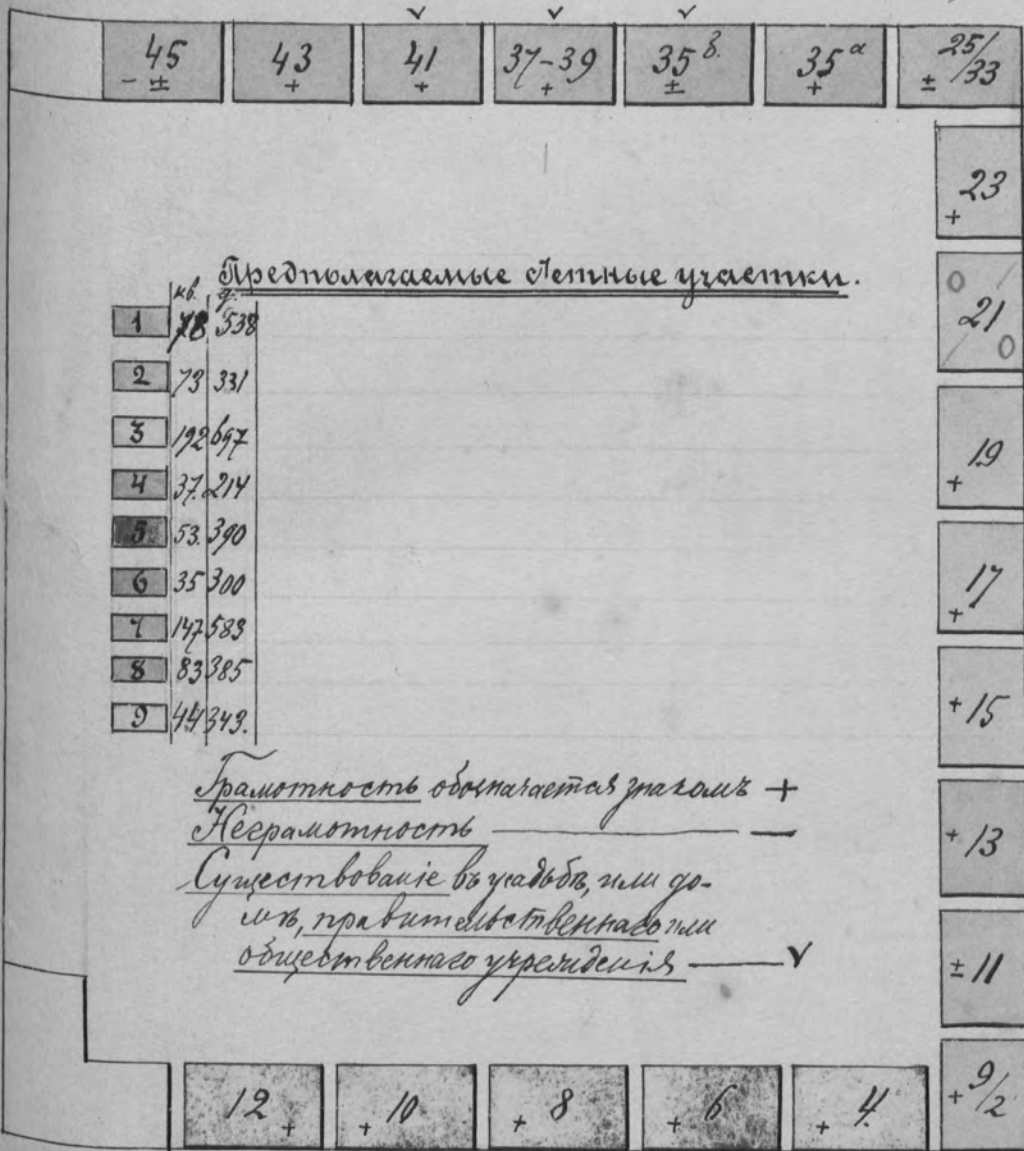 45 43 41 37-39 35 б. 35 а 25/33
- ± + + + ± + ±
23
+
Предполагаемые счетные участки.
кв. д.
1 78 538
2 73 331
3 192 697
4 37. 214
5 53. 390
6 35 300
7 147 583
8 83 385
9 44 343.
21
19
+
17
+
+ 15
Грамотность обозначается знакомъ +
Неграмотность —
Существованіе въ усадьбѣ, или до-
мѣ, правительственнаго или
общественнаго учрежденія — V
+ 13
± 11
+ 9/2
12 + + 10 + 8 + 6 + 4.